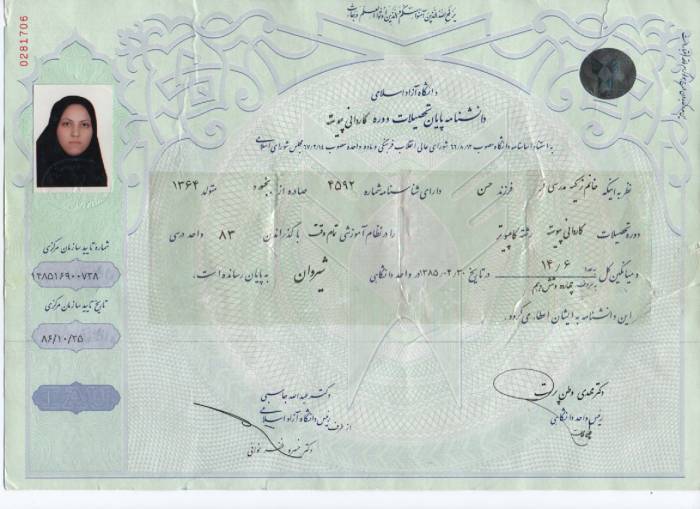 0281706
دانشگاه آزاد اسلامی
دانشنامه پایان تحصیلات دوره کاردانی پیوسته
به استناد اساسنامه دانشگاه مصوب شورای عالی انقلاب فرهنگی و ماده واحده مصوب مجلس شورای اسلامی
نظر به اینکه خانم زکیه مدرسی فرزند حسن دارای شناسنامه شماره ۴۵۹۲ صادره از بجنورد متولد ۱۳۶۴
دوره تحصیلات کاردانی پیوسته رشته کامپیوتر را در نظام آموزشی تمام وقت با گذراندن ۸۳ واحد درسی
و میانگین کل ۱۴/۰۶ و در تاریخ ۱۳۸۵/۰۴/۳۰ در واحد دانشگاهی شیروان به پایان رسانده است.
این دانشنامه به ایشان اعطا می گردد.
شماره تایید سازمان مرکزی
۱۲۸۵۱۶۹۰۰۷۳۸
تاریخ تایید سازمان مرکزی
۸۶/۱۰/۲۵
IAU
دکتر مهدی وطن پرست
رئیس واحد دانشگاهی
دکتر عبدالله جاسبی
رئیس دانشگاه آزاد اسلامی
از طرف